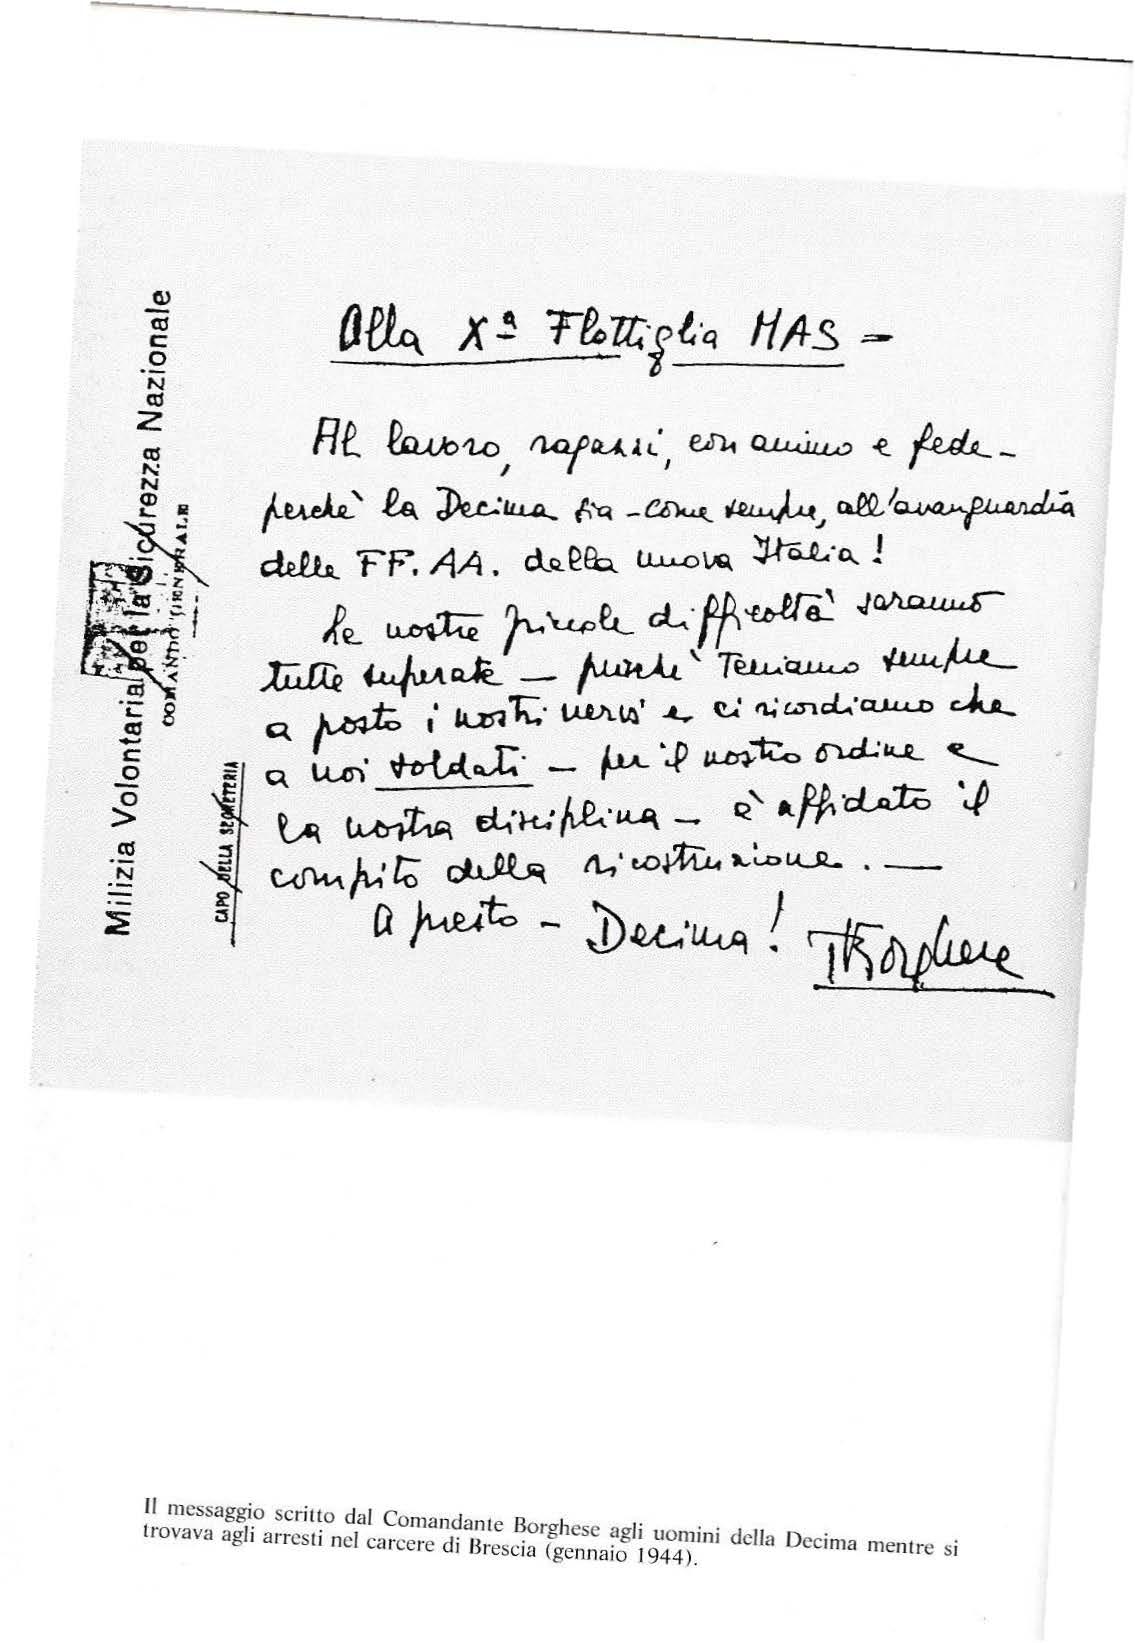 Milizia Volontaria per la Sicurezza Nazionale
COMANDO GENERALE
CAPO DELLA SEGRETERIA
Alla Xª Flottiglia MAS -
Al lavoro, ragazzi, con animo e fede -
perchè la Decima sia - come sempre, all'avanguardia
delle FF. AA. della nuova Italia!
Le nostre piccole difficoltà saranno
tutte superate - purchè teniamo sempre
a posto i nostri nervi e ci ricordiamo che
a noi soldati - per il nostro ordine e
la nostra disciplina - è affidato il
compito della ricostruzione. -
A presto - Decima! Borghese
Il messaggio scritto dal Comandante Borghese agli uomini della Decima mentre si
trovava agli arresti nel carcere di Brescia (gennaio 1944).